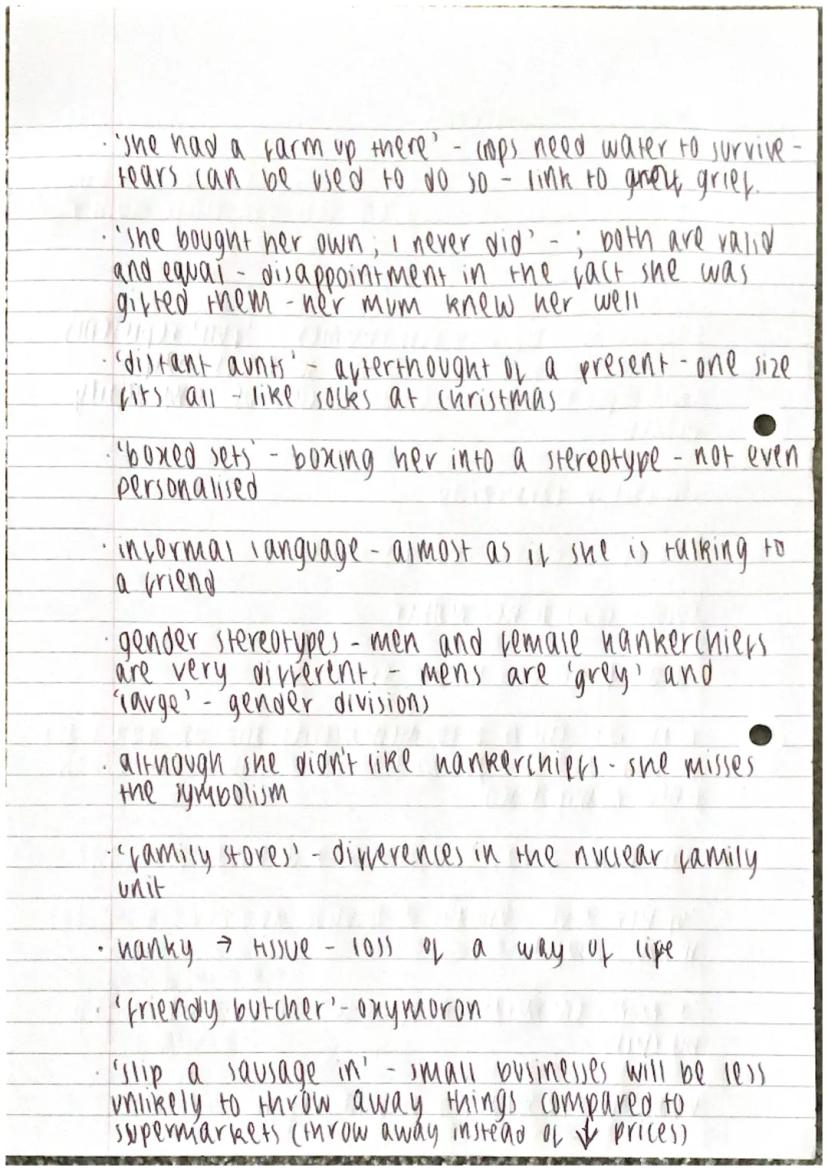 · 'she had a farm up there' - crops need water to survive -
tears can be used to do so - link to grief.
· 'she bought her own; I never did' - ; both are valid
and equal - disappointment in the fact she was
gifted them - her mum knew her well
· 'distant aunts' - afterthought of a present - one size
fits all - like socks at christmas
· 'boxed sets' - boxing her into a stereotype - not even
personalised
· informal language - almost as if she is talking to
a friend
· gender stereotypes - men and female hankerchiefs
are very different - mens are 'grey' and
'large' - gender divisions
· although she didn't like hankerchiefs - she misses
the symbolism
· 'family stores' - differences in the nuclear family
unit
· hanky → tissue - loss of a way of life
· 'friendly butcher' - oxymoron
· 'slip a sausage in' - small businesses will be less
unlikely to throw away things compared to
supermarkets (throw away instead of ↓ prices)